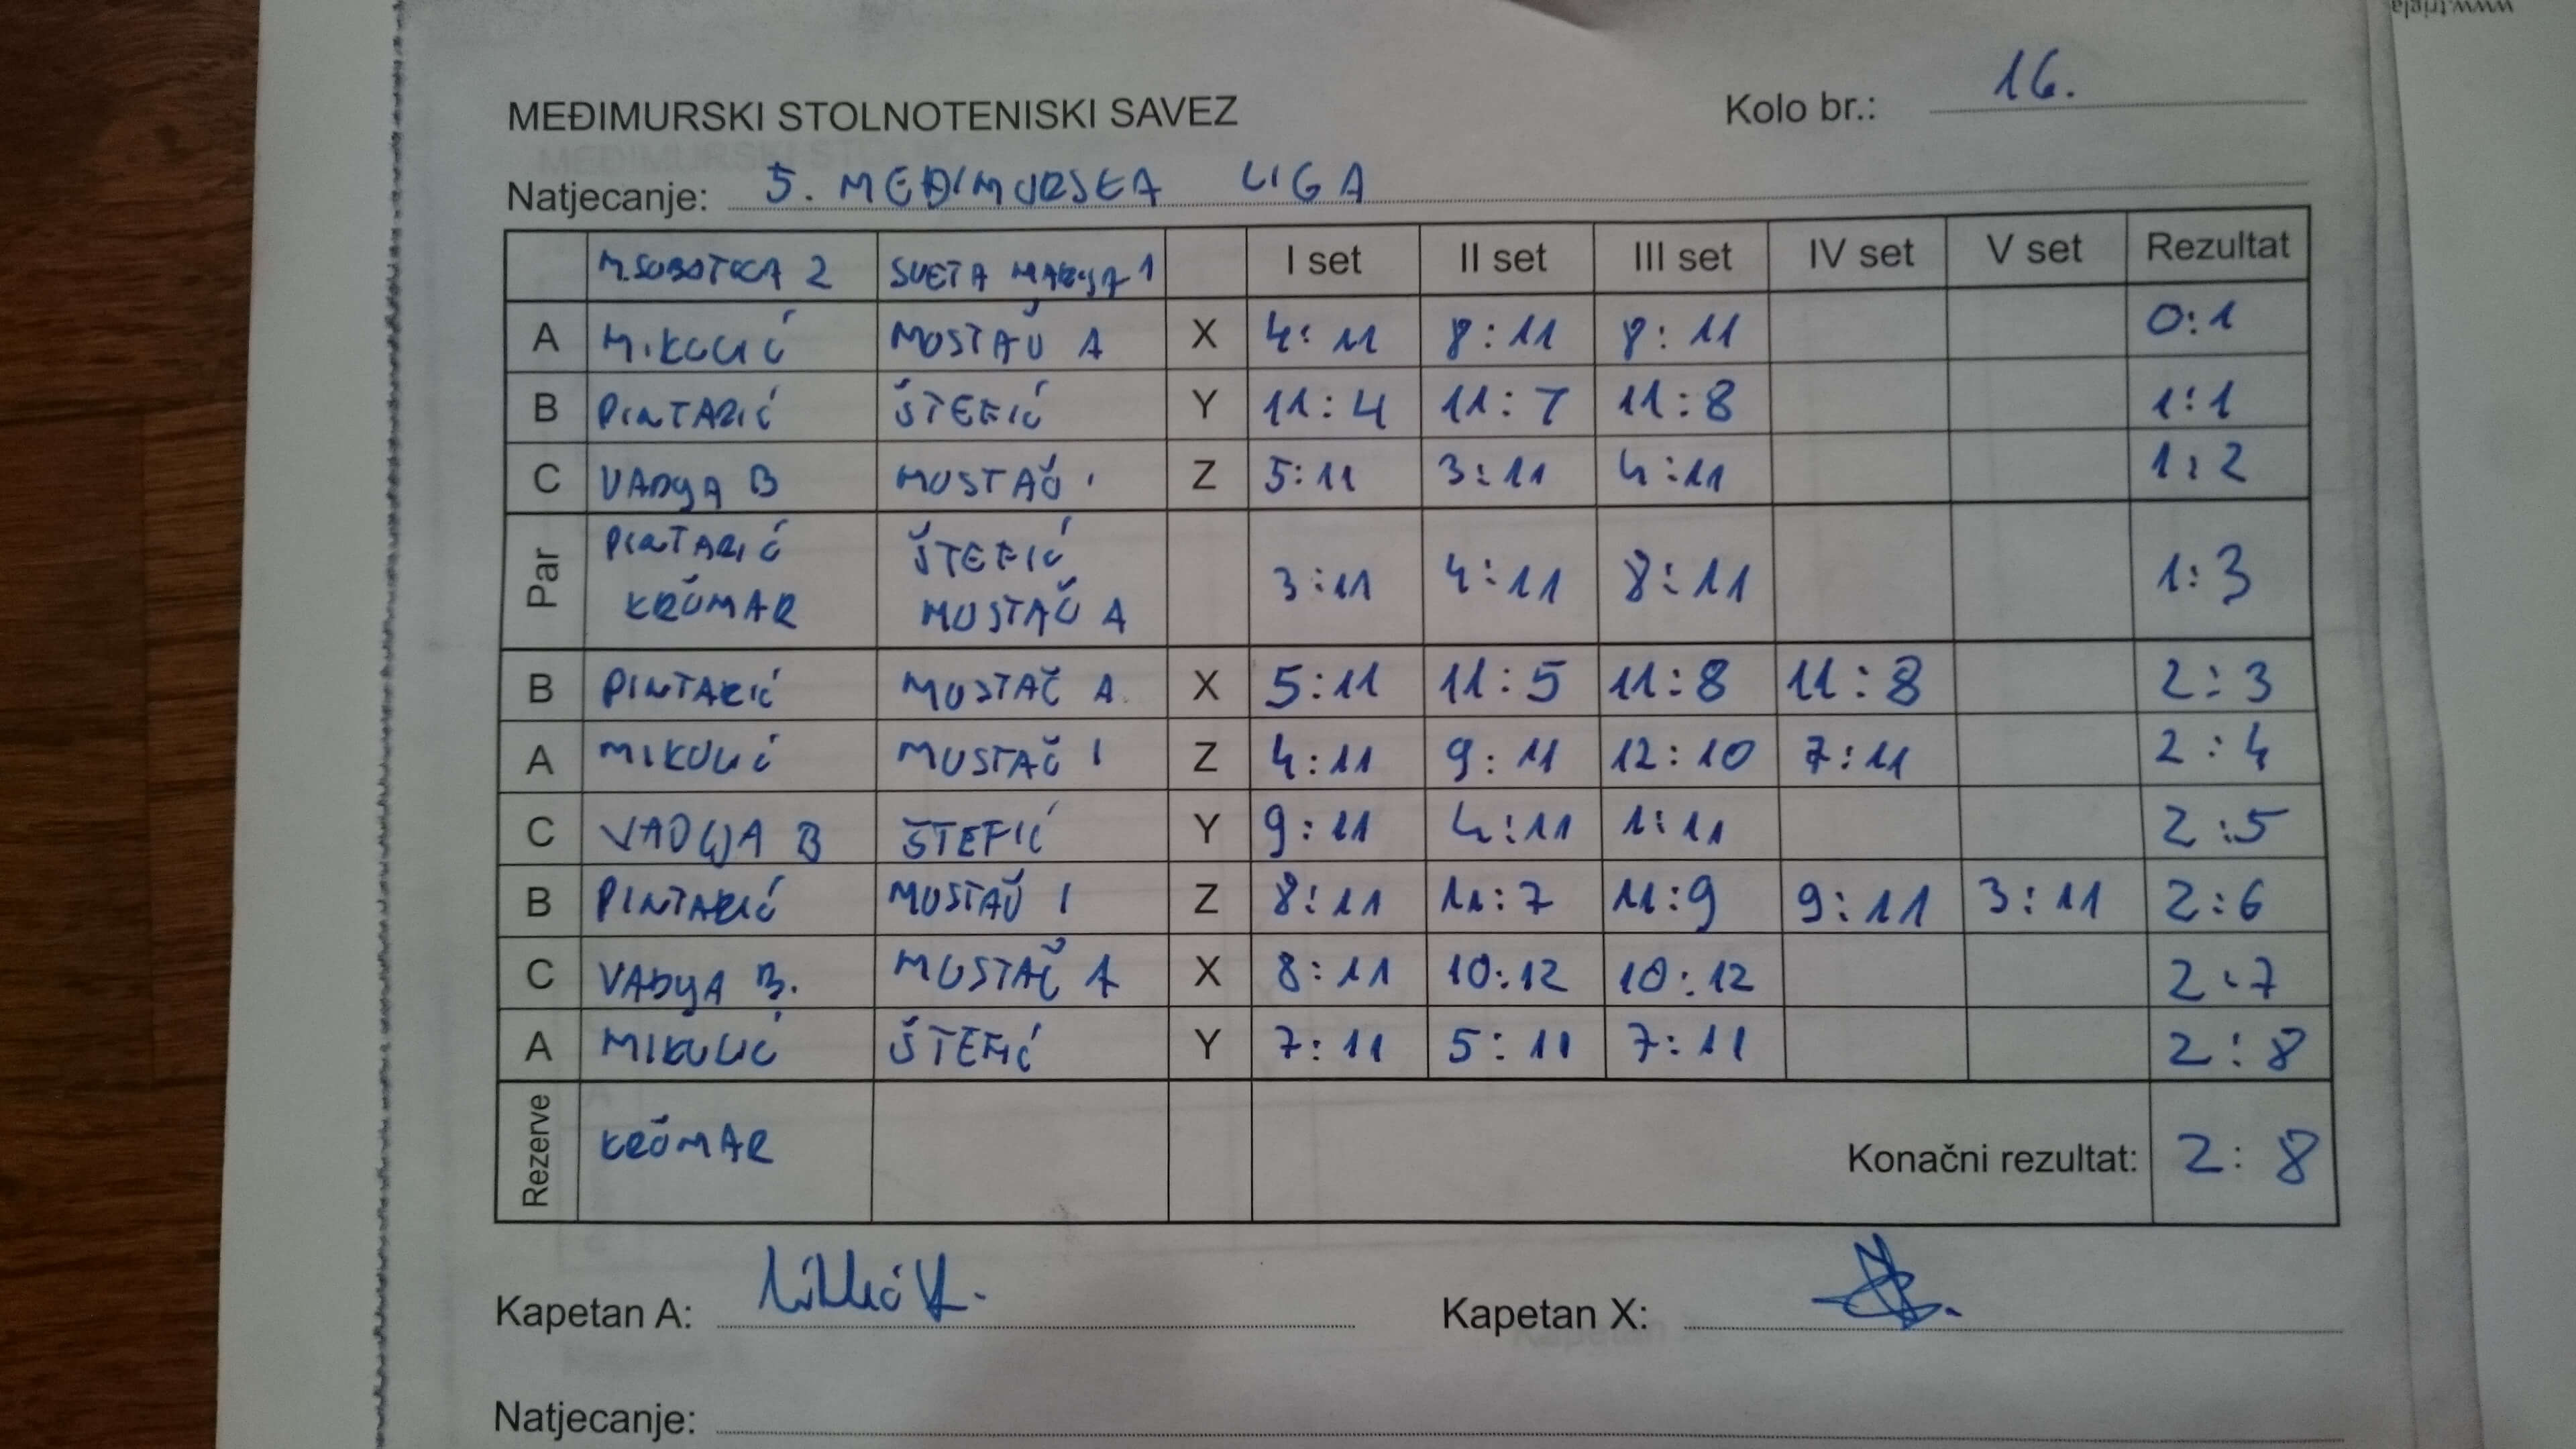 www.trigla
MEĐIMURSKI STOLNOTENISKI SAVEZ Kolo br.: 16.
Natjecanje: 5. MEĐIMURSKA LIGA
M.SUBOTICA 2 SVETA MARIJA 1 I set II set III set IV set V set Rezultat
A MIKULIĆ MUSTAČ A X 4:11 8:11 8:11 0:1
B PINTARIĆ ŠTEFIĆ Y 11:4 11:7 11:8 1:1
C VADLJA B MUSTAČ I Z 5:11 3:11 4:11 1:2
Par PINTARIĆ ŠTEFIĆ 3:11 4:11 8:11 1:3
KRČMAR MUSTAČ A
B PINTARIĆ MUSTAČ A X 5:11 11:5 11:8 11:8 2:3
A MIKULIĆ MUSTAČ I Z 4:11 9:11 12:10 7:11 2:4
C VADLJA B ŠTEFIĆ Y 9:11 4:11 1:11 2:5
B PINTARIĆ MUSTAČ I Z 8:11 11:7 11:9 9:11 3:11 2:6
C VADLJA B. MUSTAČ A X 8:11 10:12 10:12 2:7
A MIKULIĆ ŠTEFIĆ Y 7:11 5:11 7:11 2:8
Rezerve KRČMAR Konačni rezultat: 2:8
Kapetan A: Kapetan X:
Natjecanje: